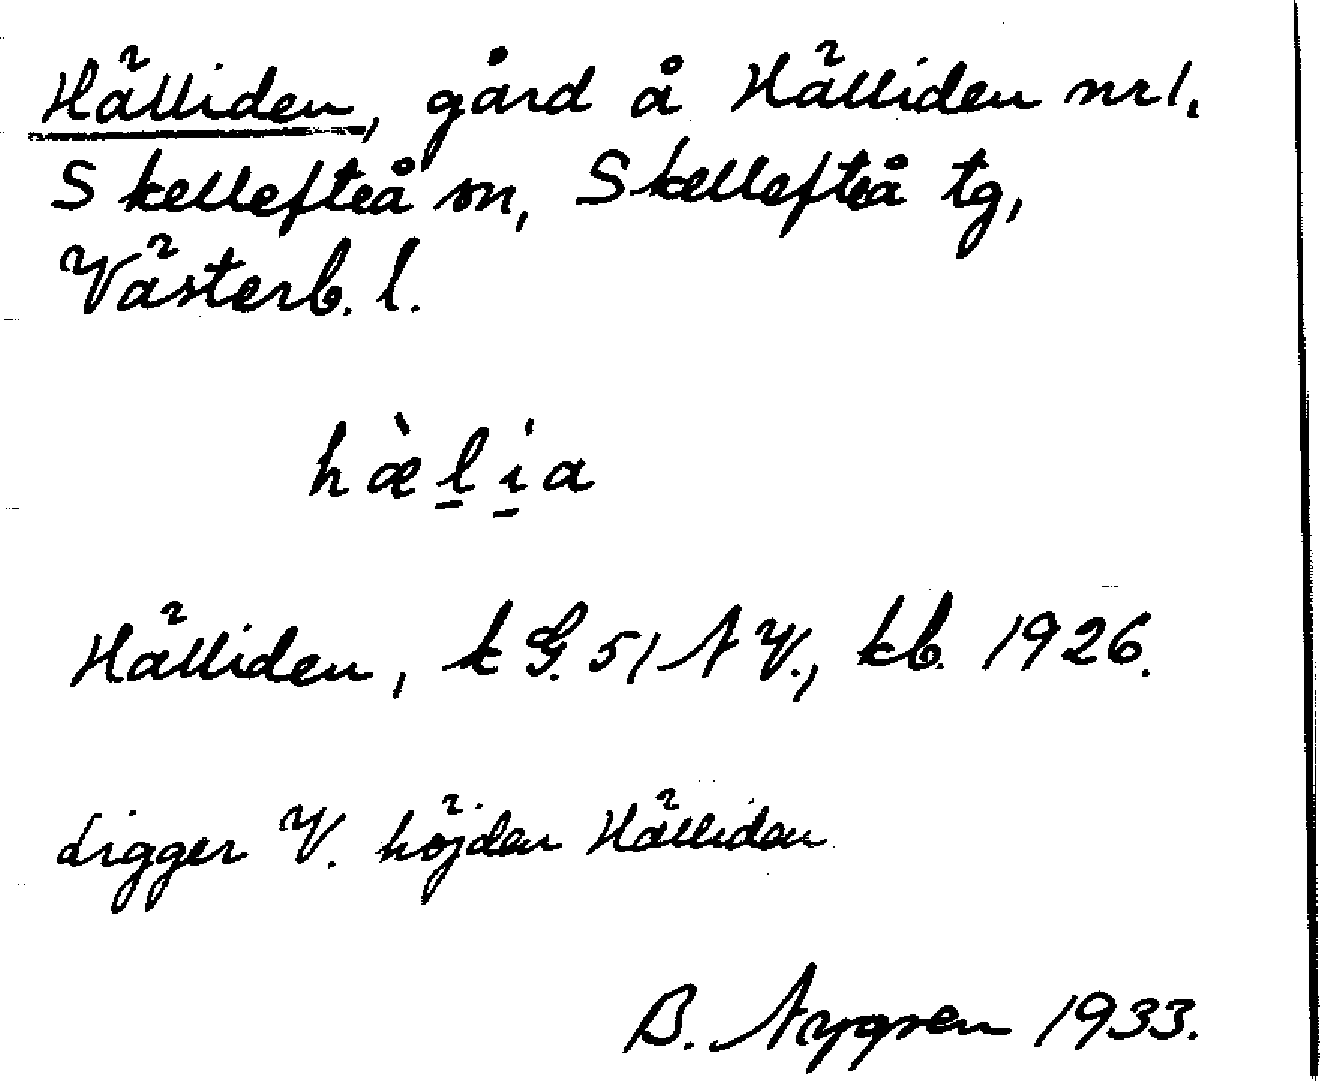 Hälliden, gård å Hälliden nr 1.
Skellefteå sn, Skellefteå tg,
Västerb. l.
hæ̀l̠i̠a
Hälliden, k G. 51 N V., kb. 1926.
Ligger V. höjden Hälliden.
B. Nygren 1933.